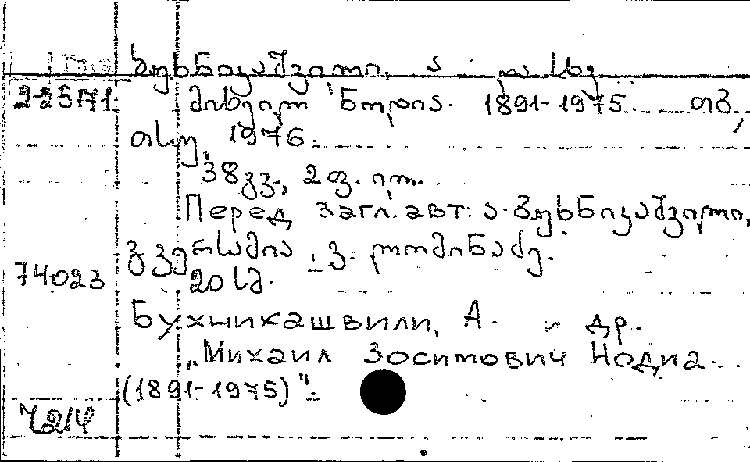 ბუხნიკაშვილი, ა. და სხვ.
22571 მიხეილ ნოდია. 1891-1975. თბ.,
თსუ, 1976.
38 გვ., 2 ფ. ილ.
Перед загл. авт: ა. ბუხნიკაშვილი,
გ. გვერსამია, ვ. ლომინაძე.
74023 20 სმ.
Бухникашвили, А. и др.
„Михаил Зосимович Нодиа
(1891-1975)".